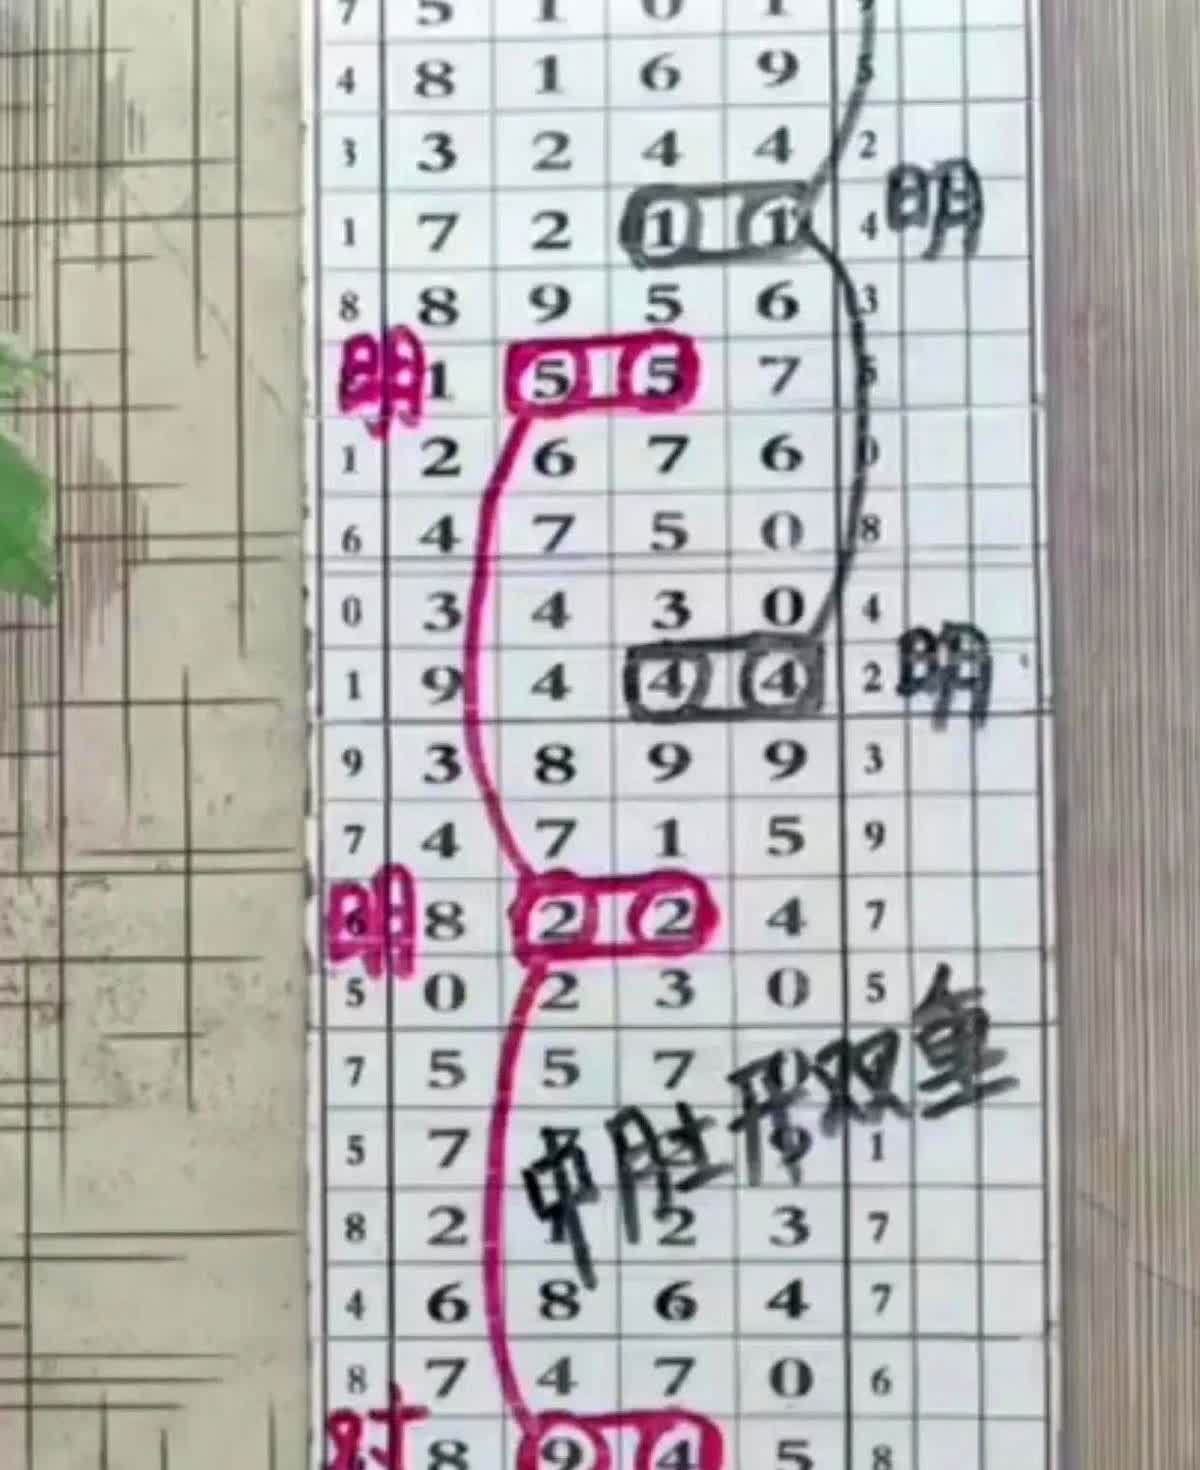 7 5 1 0 1
4 8 1 6 9
3 3 2 4 4 2
1 7 2 1 1 4 明
8 8 9 5 6 3
明 1 5 5 7
1 2 6 7 6
6 4 7 5 0 8
0 3 4 3 0 4
1 9 4 4 4 2 明
9 3 8 9 9 3
7 4 7 1 5 9
明 6 8 2 2 4 7
5 0 2 3 0 5
7 5 5 7
中肚开双重
5 7 9 1
8 2 1 2 3 7
4 6 8 6 4 7
8 7 4 7 0 6
对 8 9 4 5 8